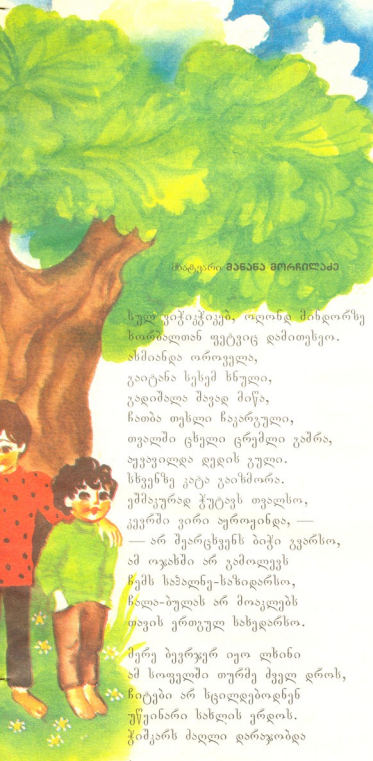 მხატვარი მანანა მორჩილაძე
სულ ვიჭიკჭიკებ, ოღონდ მინდორზე
ხორბალთან ფეტვიც დამითესეო.
ახმიანდა ოროველა,
გაიტანა სესემ ხნული,
გადიშალა შავად მიწა,
ჩათბა თესლი ჩაკარგული,
თვალში ცხელი ცრემლი გაშრა,
აყვავილდა დედის გული.
სხვენზე კატა გაიზმორა.
ეშმაკურად ჭუტავს თვალსო,
კევრში ვირი აყროყინდა, —
— არ შეარცხვენს ბიჭი გვარსო,
ამ ოჯახში არ გამოლევს
ჩემს საპალნე-საზიდარსო,
ჩალა-ბულას არ მოაკლებს
თავის ერთგულ სახედარსო.
მერე ბევრჯერ იყო ლხინი
ამ სოფელში თურმე ძველ დროს,
ჩიტები არ სცილდებოდნენ
უწყინარი სახლის ერდოს.
ჭიშკარს ძაღლი დარაჯობდა